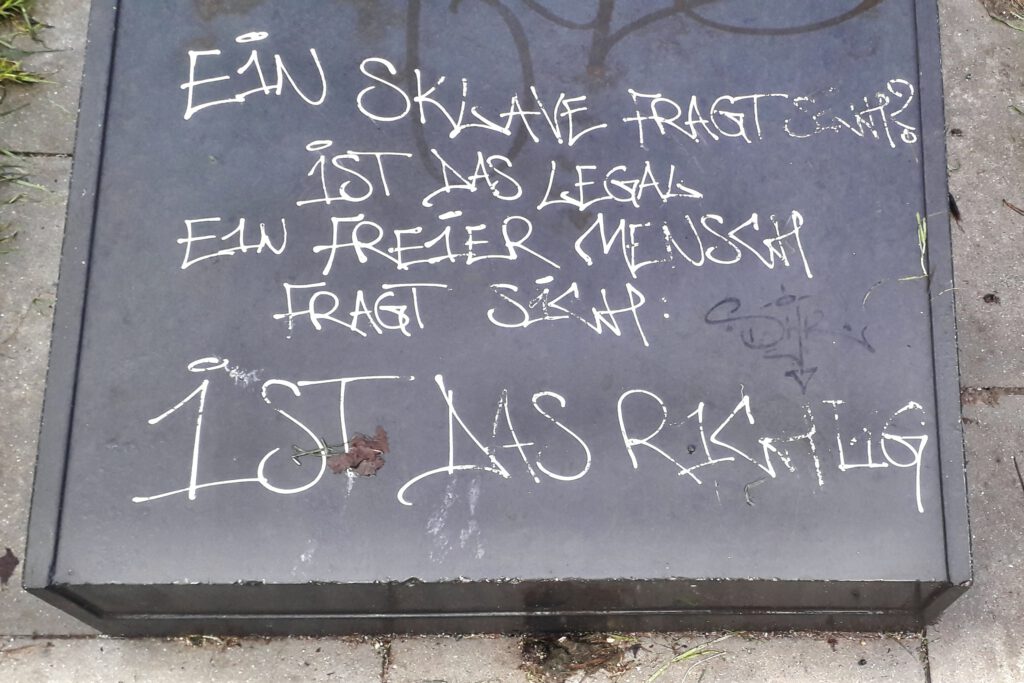 EIN SKLAVE FRAGT SICH?
IST DAS LEGAL
EIN FREIER MENSCH
FRAGT SICH:
IST DAS RICHTIG